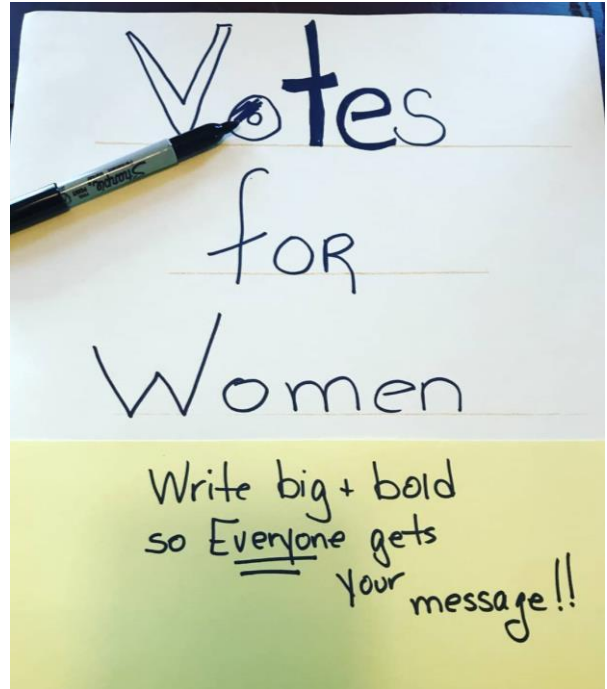 Votes
for
Women
Sharpie
Write big + bold
so Everyone gets
your message!!